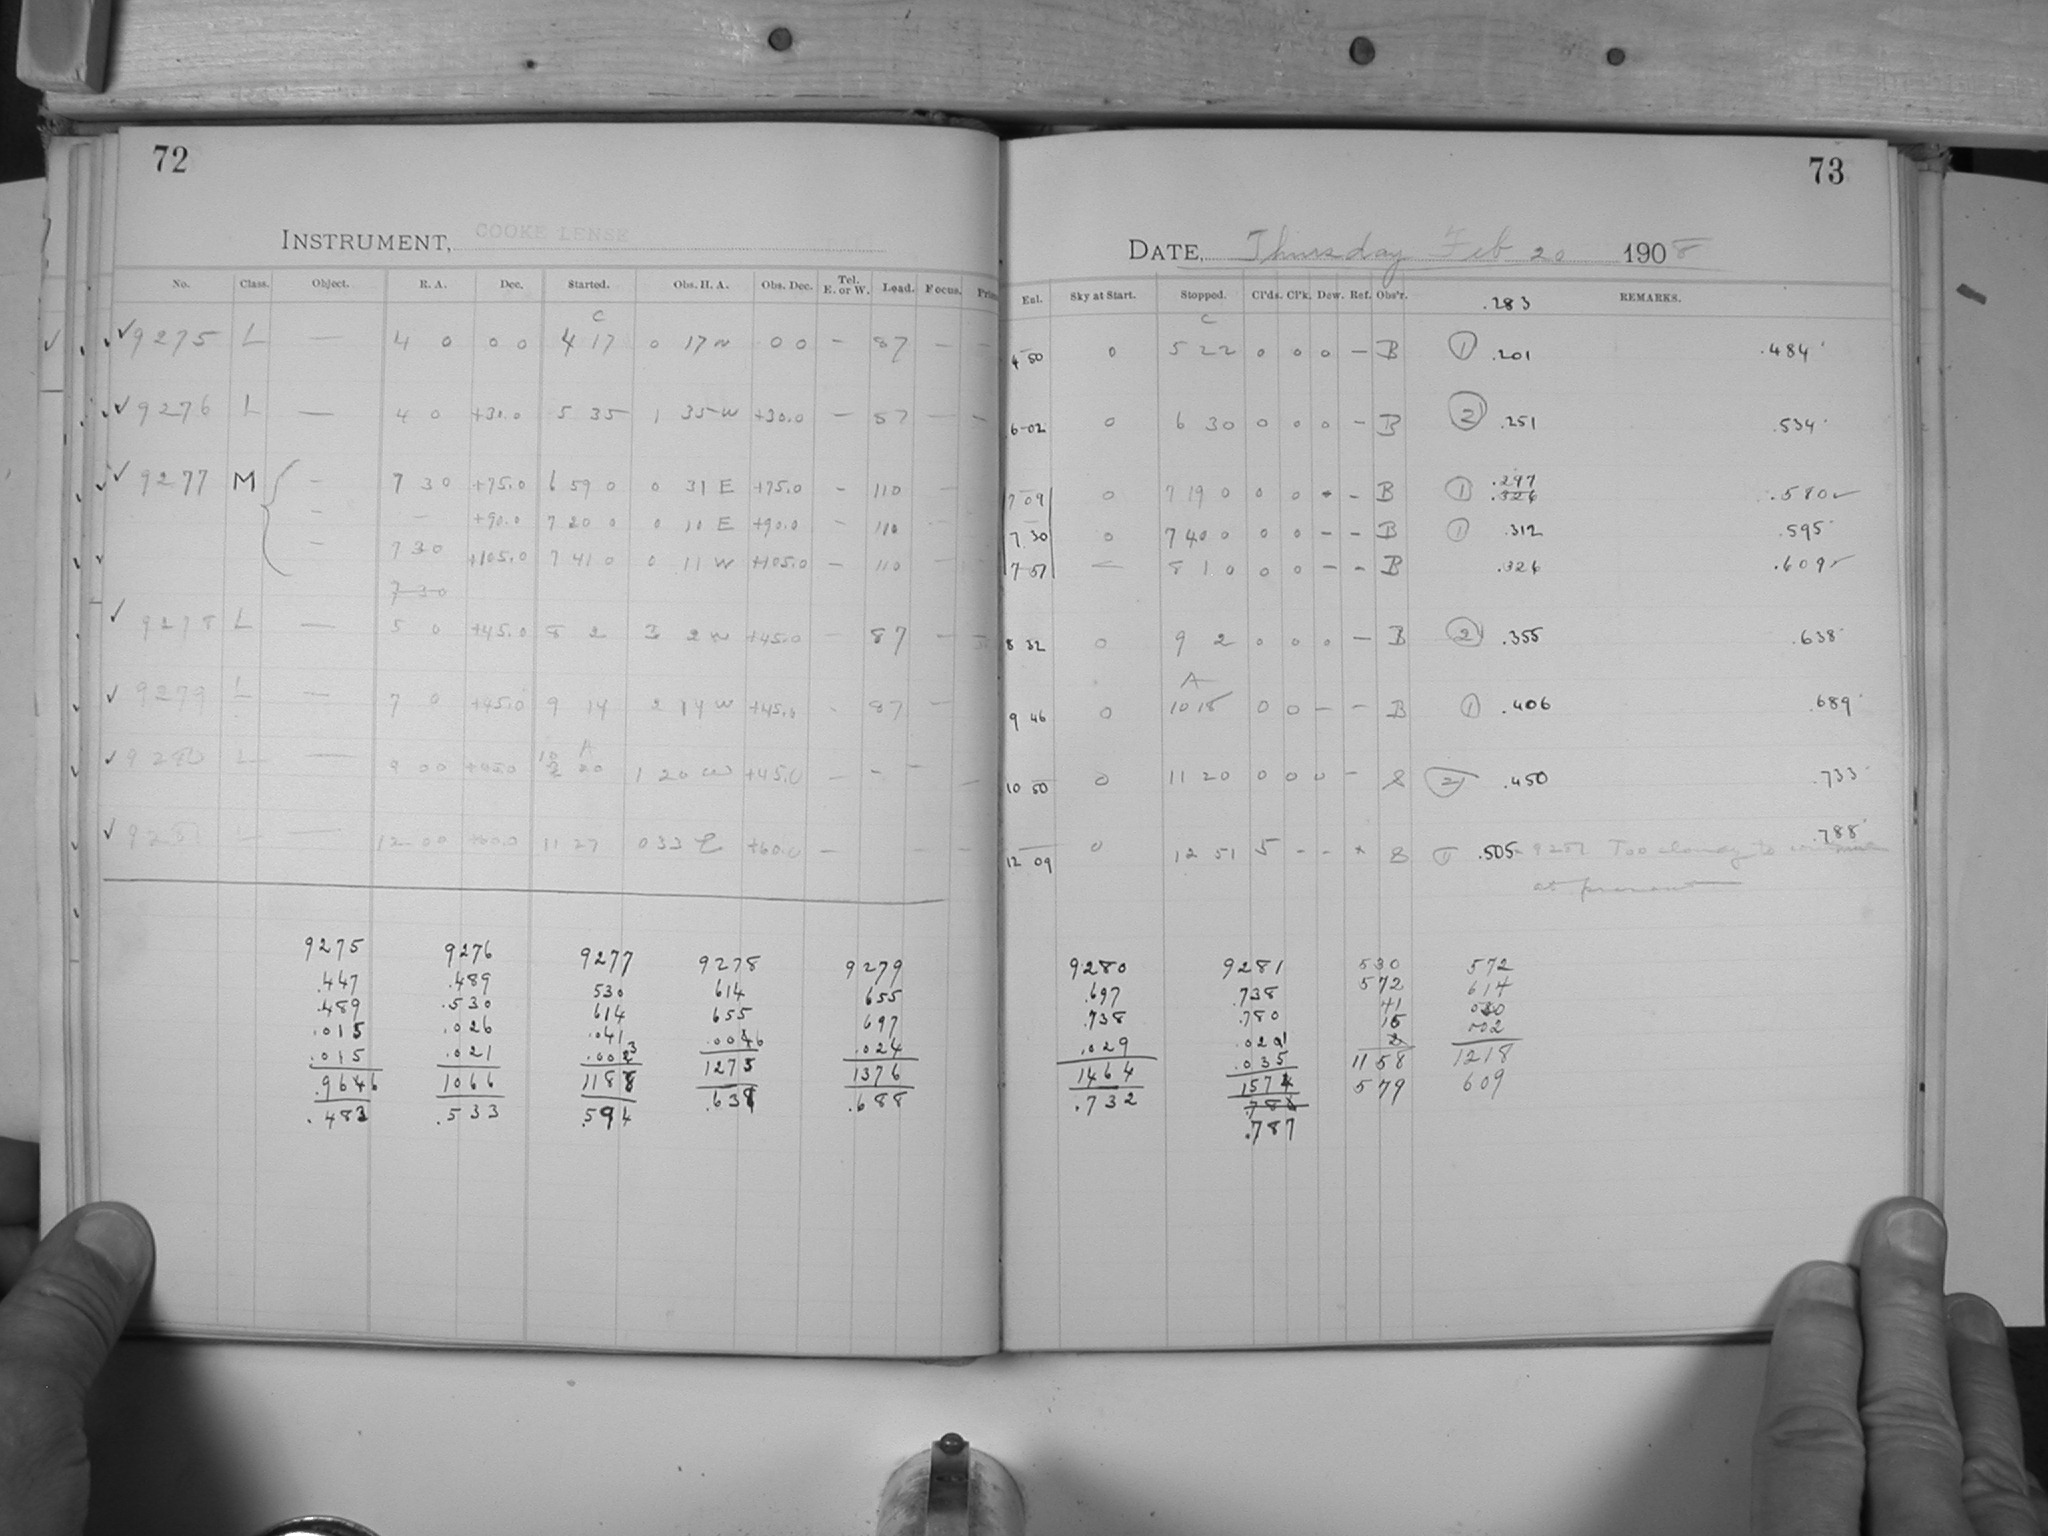 72
INSTRUMENT, COOKE LENSE
No. Class. Object. R. A. Dec. Started. Obs. H. A. Obs. Dec. Tel. E. or W. Lead. Focus.
C
9275 L — 4 0 0 0 4 17 0 17 W 0 0 — 87 — —
9276 L — 4 0 +30.0 5 35 1 35 W +30.0 — 87 — —
9277 M — 7 30 +75.0 6 59 0 0 31 E +75.0 — 110 —
— — +90.0 7 20 0 0 10 E +90.0 — 110
— 7 30 +105.0 7 41 0 0 11 W +105.0 — 110
7 30
9278 L — 5 0 +45.0 8 2 3 2 W +45.0 — 87 —
9279 L — 7 0 +45.0 9 14 2 14 W +45.0 — 87 —
A
9280 L — 9 00 +45.0 10 20 1 20 W +45.0 — — —
9281 L — 12 00 +60.0 11 27 0 33 E +60.0 — — —
9275 9276 9277 9278 9279
.447 .489 530 614 655
.489 .530 614 655 697
.015 .026 .041 .024
.015 .021 1275 1376
1066 .688
.483 .533 .594
73
DATE, Thursday Feb 20 1908
Exl. Sky at Start. Stopped. Cl'ds. Cl'k. Dew. Ref. Obs'r. REMARKS.
.283
C
4 50 0 5 22 0 0 0 — B 1 .201 .484
6 02 0 6 30 0 0 0 — B 2 .251 .534
.297
7 09 0 7 19 0 0 0 — B 1 .326 .580
7 30 0 7 40 0 0 0 — — B 1 .312 .595
7 51 — 8 1 0 0 0 — — B .326 .609
8 32 0 9 2 0 0 0 — B 2 .355 .638
A
9 46 0 10 18 0 0 — — B 1 .406 .689
10 50 0 11 20 0 0 0 — 2 .450 .733
.788
12 09 0 12 51 5 — — 1 .505 9281 Too cloudy to
at present
9280 9281 530 572
.697 .738 572 614
.738 .780 41
.029 15 002
1464 .035 1158 1218
.732 579 609
.787